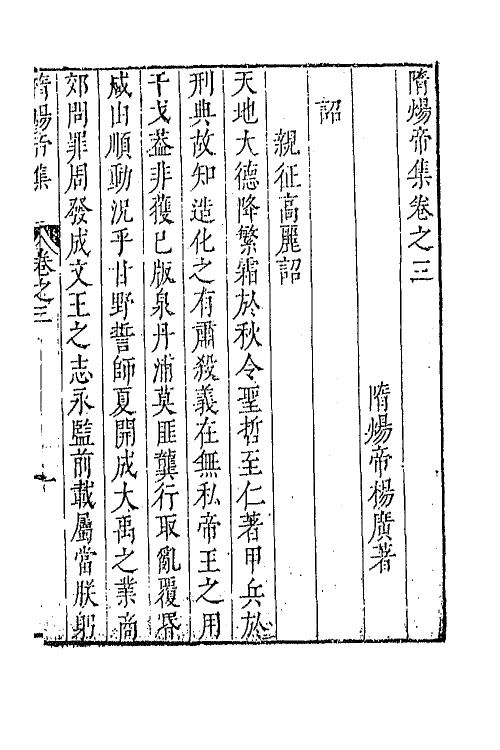 隋煬帝集卷之三
隋煬帝楊廣著
詔
親征高麗詔
天地大德降繁霜於秋令聖哲至仁著甲兵於
刑典故知造化之有肅殺義在無私帝王之用
干戈葢非獲已版泉丹浦莫匪龔行取亂覆昏
咸由順動況乎甘野誓師夏開成大禹之業商
郊問罪周發成文王之志永監前載屬當朕躬
隋煬帝集 卷之三 一